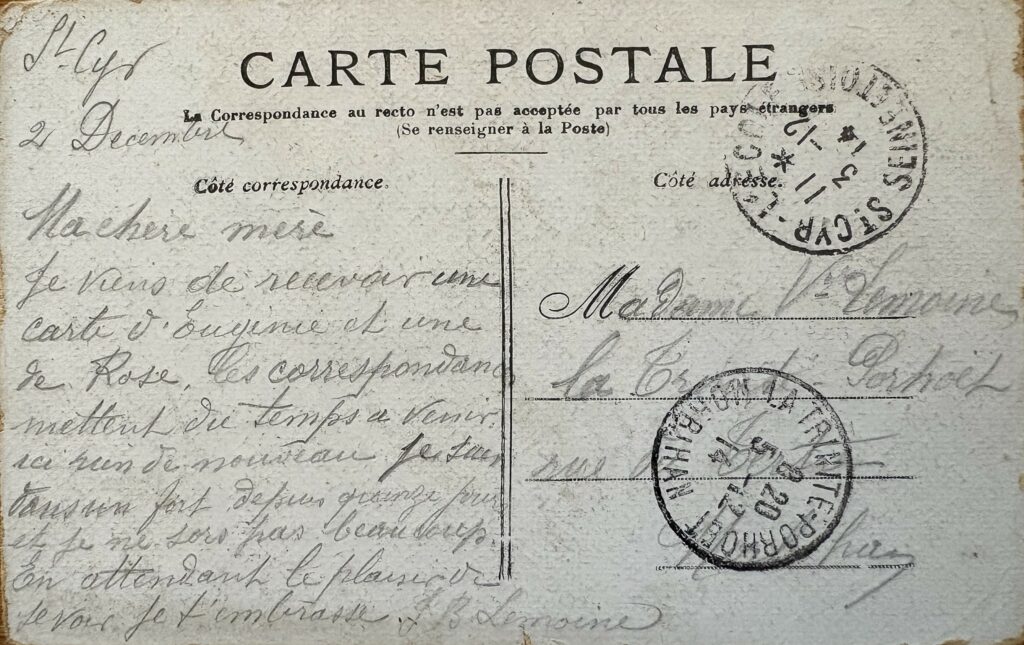 St Cyr
2 Decembre
CARTE POSTALE
La Correspondance au recto n'est pas acceptée par tous les pays étrangers
(Se renseigner à la Poste)
Côté correspondance.
Ma chere merè
Je viens de recevoir une
carte d'Eugenie et une
de Rose, les correspondanc
mettent du temps a venir.
ici rien de nouveau je suis
dans un fort depuis quinze jour
et je ne sors pas beaucoup.
En attendant le plaisir de
te voir je t'embrasse. J B Lemoine
Côté adresse.
ST CYR-L'ECOLE SEINE-ET-OISE
11 * 3 -12 14
Madame Ve Lemoine
la Porhoët
rue
LA TRINITE-PORHOET MORBIHAN
8 20 5 -12 14